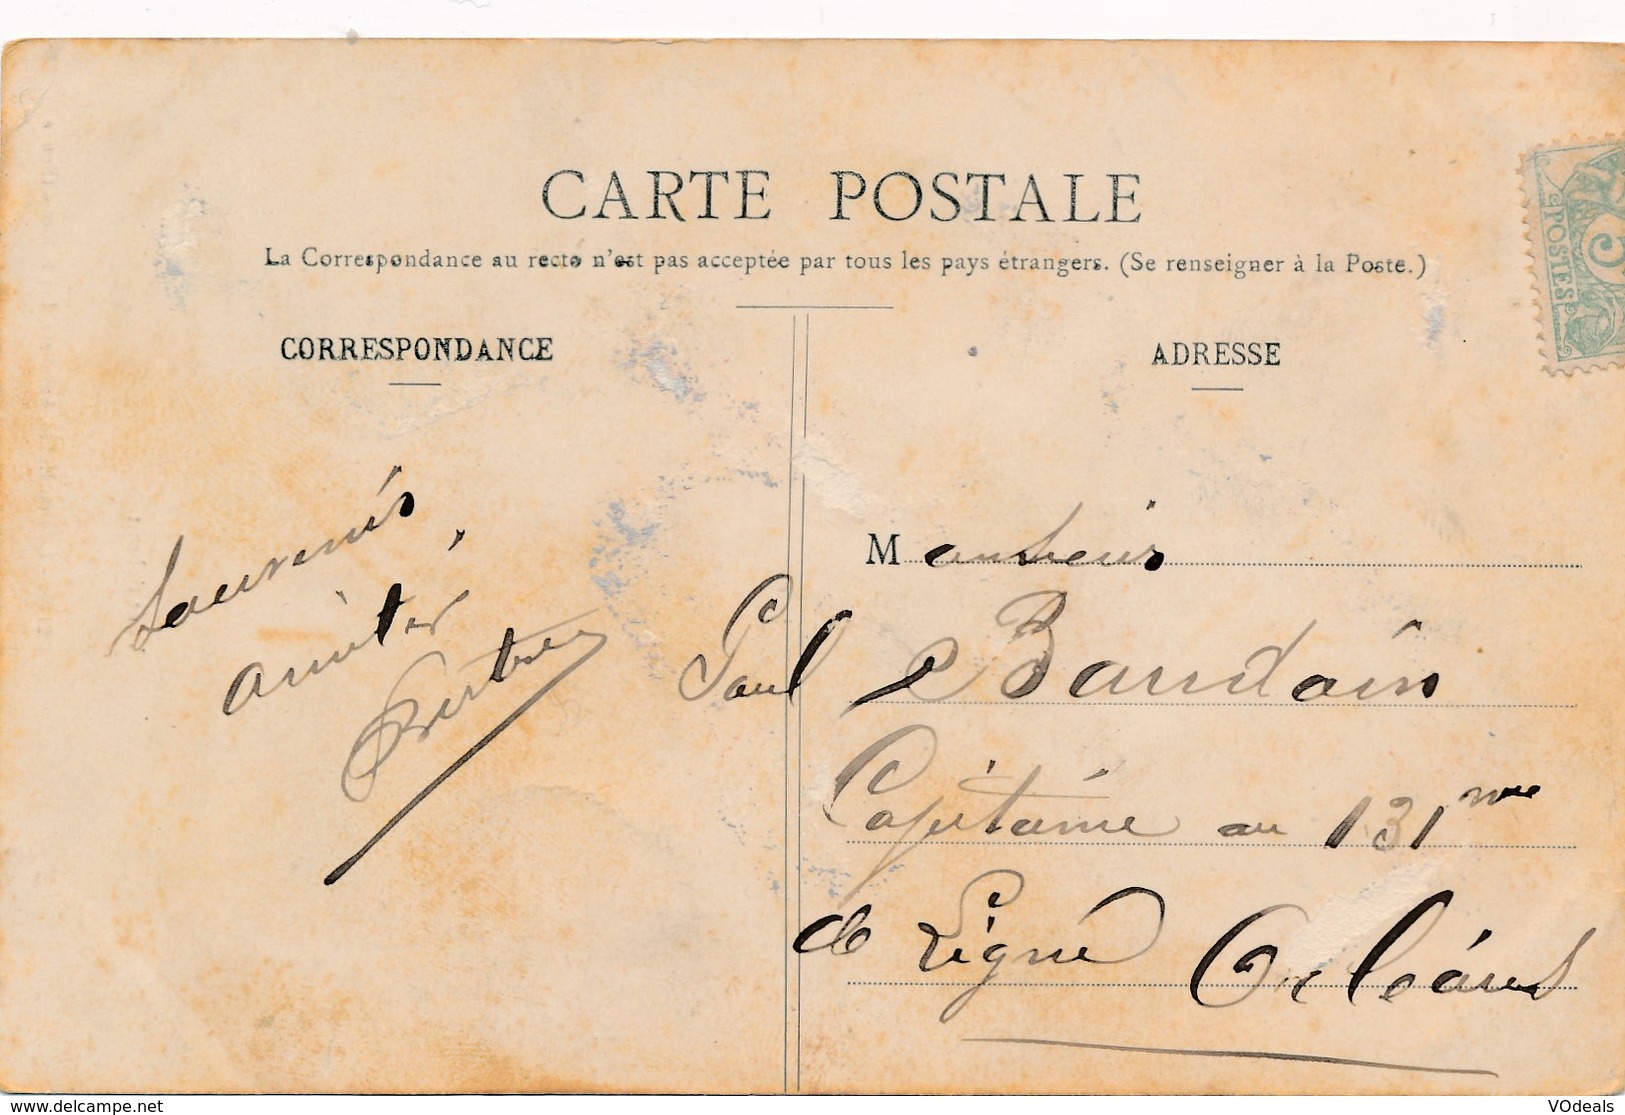 CARTE POSTALE
La Correspondance au recto n'est pas acceptée par tous les pays étrangers. (Se renseigner à la Poste.)
CORRESPONDANCE
Souvenirs,
amitiés
ADRESSE
POSTES
5
Monsieur
Paul Baudoin
Capitaine au 131me
de Ligne Orléans
www.delcampe.net
VOdeals